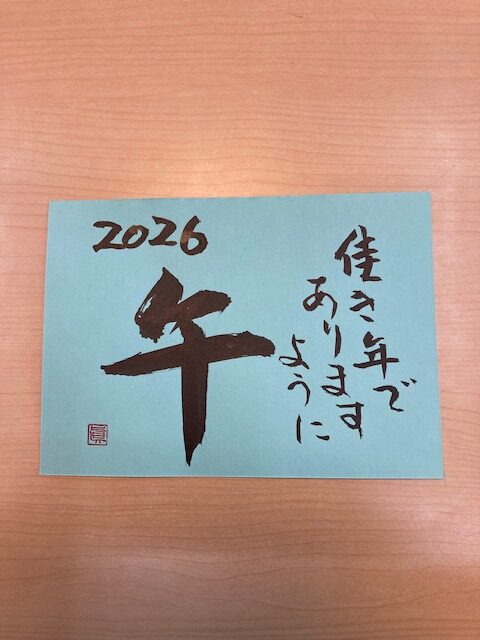 2026
午
佳き年で
あります
ように
眞